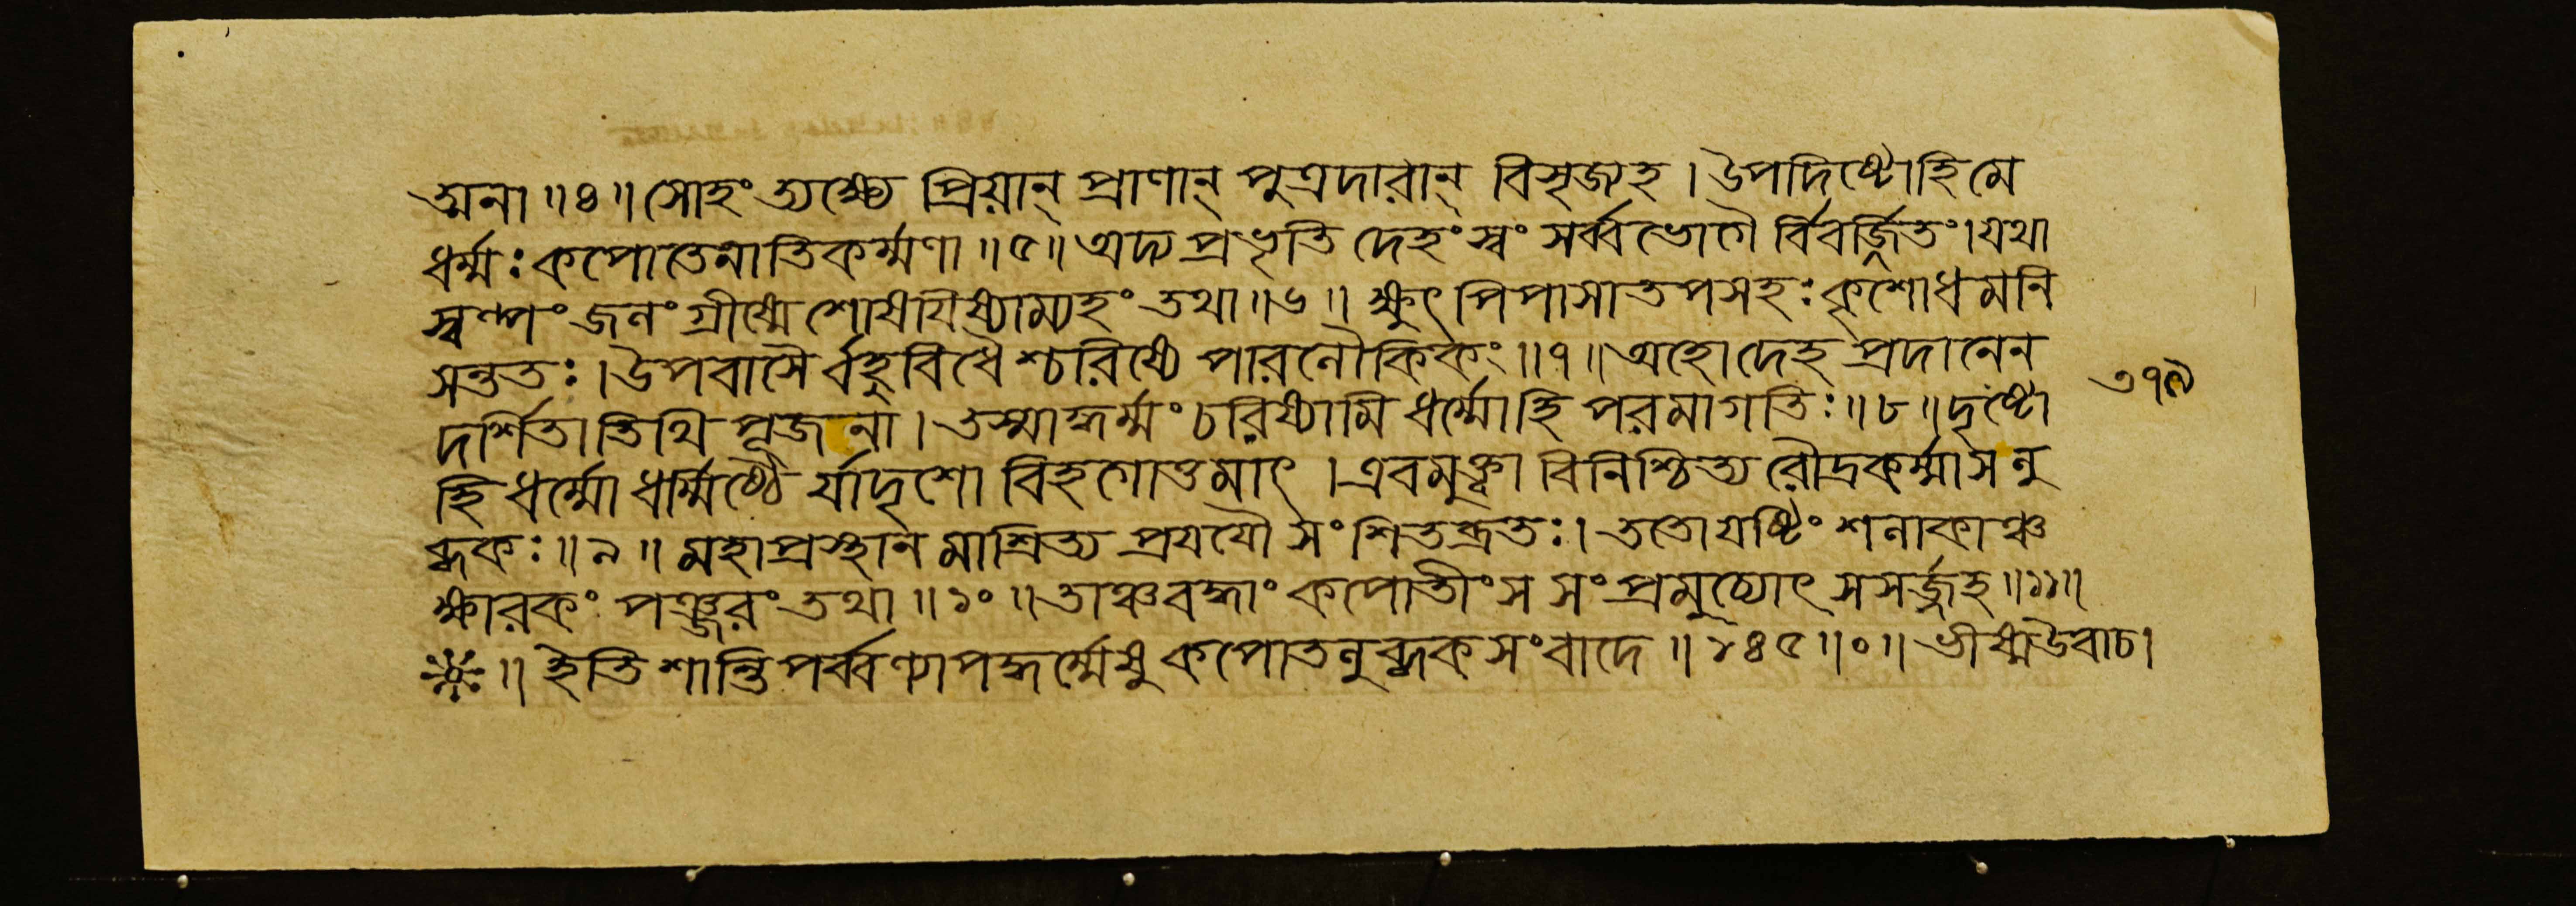 ত্মনা ॥ ৪ ॥ সোহং ত্যক্ষ্যে প্রিয়ান্ প্রাণান্ পুত্রদারান্ বিসৃজ্যহ । উপদিষ্টোহি মে
ধর্ম্মঃ কপোতেনাতিকর্ম্মণা ॥ ৫ ॥ অদ্য প্রভৃতি দেহং স্বং সর্ব্বভোগৈ র্বিবর্জ্জিতং । যথা
স্বল্পং জলং গ্রীষ্মে শোষযিষ্যাম্যহং তথা ॥ ৬ ॥ ক্ষুৎ পিপাসাতপসহঃ কৃশোধমনি
সন্ততঃ । উপবাসৈ র্বহুবিধৈ শ্চরিষ্যে পারলৌকিকং ॥ ৭ ॥ অহোদেহ প্রদানেন
দর্শিতাতিথি পূজনা । তস্মাদ্ধর্ম্মং চরিষ্যামি ধর্ম্মোহি পরমাগতিঃ ॥ ৮ ॥ দৃষ্টো
৩৭৯
হি ধর্ম্মো ধর্ম্মিষ্ঠৈ র্যাদৃশো বিহগোত্তমাৎ । এবমুক্ত্বা বিনিশ্চিত্য রৌদ্রকর্ম্মাসলু
ব্ধকঃ ॥ ৯ ॥ মহাপ্রস্থান মাশ্রিত্য প্রযযৌ সংশিতব্রতঃ । ততোযষ্টিং শলাকাঞ্চ
ক্ষারকং পঞ্জরং তথা ॥ ১০ ॥ তাঞ্চবদ্ধাং কপোতীংস সংপ্রমুচ্যোৎ সসর্জ্জহ ॥ ১১ ॥
॥ ইতি শান্তিপর্ব্বণ্যাপদ্ধর্ম্মেষু কপোতলুব্ধকসংবাদে ॥ ১৪৫ ॥ ০ ॥ ভীষ্মউবাচ ।